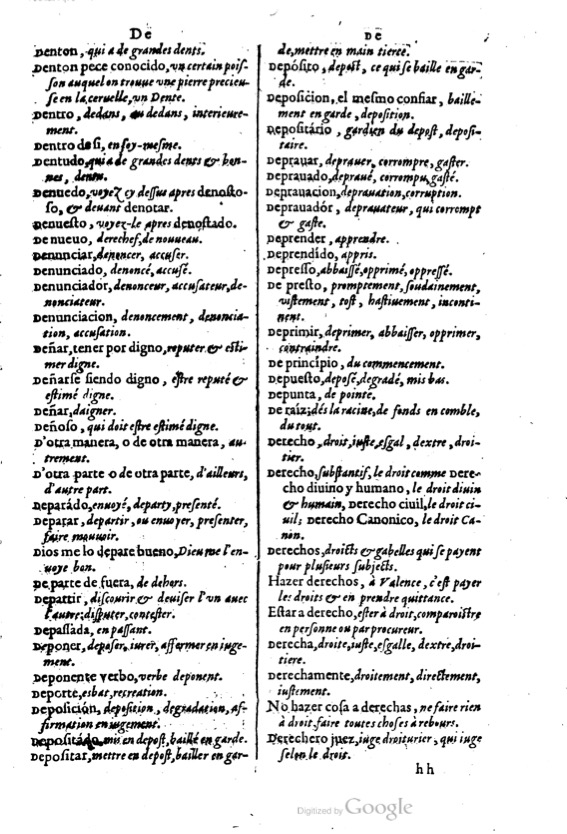 De
Denton, qui a de grandes dents.
Denton pece conocido, un certain pois-
son auquel on trouve une pierre precieu-
se en la cervelle, un Dente.
Dentro, dedans, au dedans, interieure-
ment.
Dentro de si, en soy-mesme.
Dentudo, qui a de grandes dents & bon-
nes, dentu.
Denuedo, voyez cy dessus apres denosto-
so, & devant denotar.
Denuesto, voyez-le apres denostado.
De nueuo, derechef, de nouueau.
Denunciar, denoncer, accuser.
Denunciado, denoncé, accusé.
Denunciador, denonceur, accusateur, de-
nonciateur.
Denunciacion, denoncement, denoncia-
tion, accusation.
Deñar, tener por digno, reputer & esti-
mer digne.
Deñarse siendo digno, estre reputé &
estimé digne.
Deñar, daigner.
Deñoso, qui doit estre estimé digne.
D'otra manera, o de otra manera, au-
trement.
D'otra parte o de otra parte, d'ailleurs,
d'autre part.
Deparádo, enuoyé, departy, presenté.
Deparar, departir, ou enuoyer, presenter,
faire mouuoir.
Dios me lo depare bueno, Dieu me l'en-
uoye bon.
De parte de fuera, de dehors.
Departir, discourir & deuiser l'un auec
l'autre, disputer, contester.
Depassada, en passant.
Deponer, deposer, iurer, affermer en iuge-
ment.
Deponente verbo, verbe deponent.
Deporte, esbat, recreation.
Deposición, deposition, degradation, af-
firmation en iugement.
Depositádo, mis en depost, baillé en garde.
Depositar, mettre en depost, bailler en gar-
De
de, mettre en main tierce.
Depósito, depost, ce qui se baille en gar-
de.
Deposicion, el mesmo confiar, baille-
ment en garde, deposition.
Depositário, gardien du depost, deposi-
taire.
Deprauar, deprauer, corrompre, gaster.
Deprauado, depraué, corrompu, gasté.
Deprauacion, deprauation, corruption.
Deprauadór, deprauateur, qui corrompt
& gaste.
Deprender, apprendre.
Deprendído, appris.
Depresso, abbaissé, opprimé, oppressé.
De presto, promptement, soudainement,
vistement, tost, hastiuement, inconti-
nent.
Deprimir, deprimer, abbaisser, opprimer,
contraindre.
De principio, du commencement.
Depuesto, deposé, degradé, mis bas.
Depunta, de pointe.
De raíz, dés la racine, de fonds en comble,
du tout.
Derecho, droit, iuste, esgal, dextre, droi-
tier.
Derecho, substantif, le droit comme Dere-
cho diuino y humano, le droit diuin
& humain, Derecho ciuil, le droit ci-
uil; Derecho Canonico, le droit Ca-
non.
Derechos, droicts & gabelles qui se payent
pour plusieurs subjects.
Hazer derechos, à Valence, c'est payer
les droits & en prendre quittance.
Estar a derecho, ester à droit, comparoistre
en personne ou par procureur.
Derecha, droite, iuste, esgalle, dextre, droi-
tiere.
Derechamente, droitement, directement,
iustement.
No hazer cosa a derechas, ne faire rien
à droit, faire toutes choses à rebours.
Derechero juez, iuge droiturier, qui iuge
selon le droit.
hh
Digitized by Google